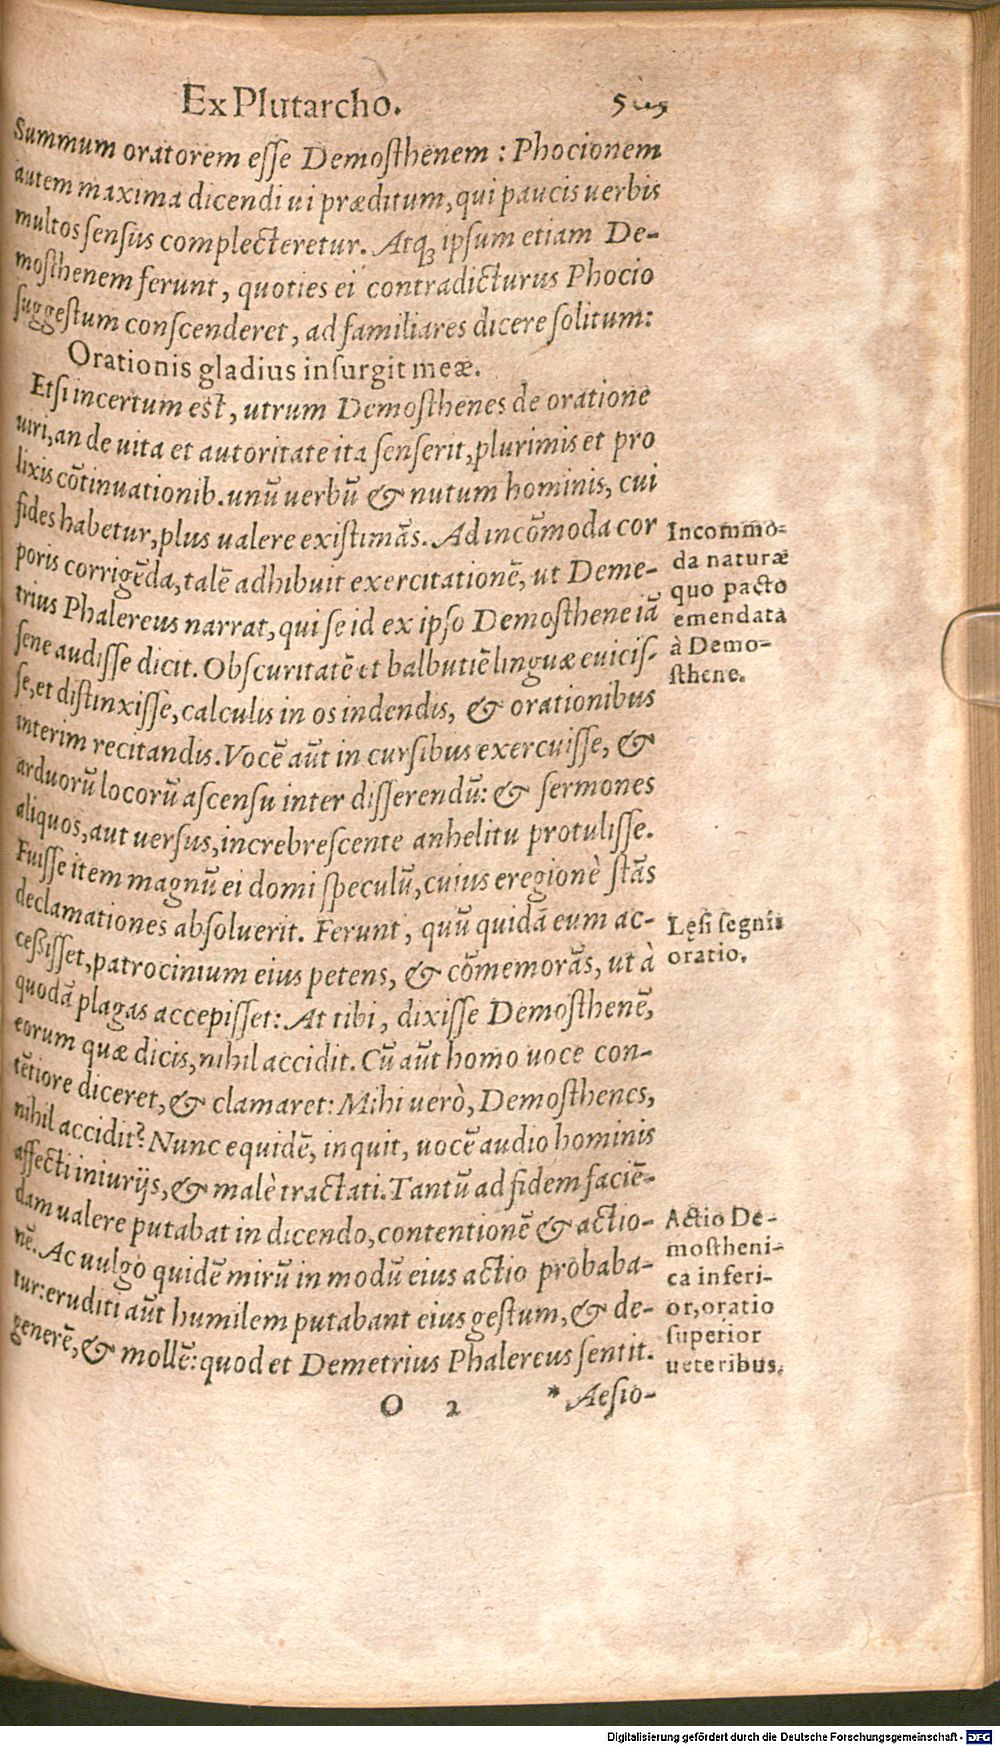 Ex Plutarcho.
Summum oratorem esse Demosthenem : Phocionem
autem maxima dicendi ui præditum, qui paucis uerbis
multos sensus complecteretur. Atq; ipsum etiam De-
mosthenem ferunt, quoties ei contradicturus Phocio
suggestum conscenderet, ad familiares dicere solitum:
Orationis gladius insurgit meæ.
Etsi incertum est, utrum Demosthenes de oratione
uiri, an de uita et autoritate ita senserit, plurimis et pro
lixis cōtinuationib. unū uerbū & nutum hominis, cui
fides habetur, plus ualere existimās. Ad incōmoda cor
poris corrigēda, talē adhibuit exercitationē, ut Deme-
trius Phalereus narrat, qui se id ex ipso Demosthene iā
sene audisse dicit. Obscuritatē et balbutiē linguæ euicis-
se, et distinxisse, calculis in os indendis, & orationibus
interim recitandis. Vocē aūt in cursibus exercuisse, &
arduorū locorū ascensu inter disserendū: & sermones
aliquos, aut uersus, increbrescente anhelitu protulisse.
Fuisse item magnū ei domi speculū, cuius eregionè stās
declamationes absoluerit. Ferunt, quū quidā eum ac-
cessisset, patrocinium eius petens, & cōmemorās, ut à
quodā plagas accepisset: At tibi, dixisse Demosthenē,
eorum quæ dicis, nihil accidit. Cū aūt homo uoce con-
tētiore diceret, & clamaret: Mihi uerò, Demosthenes,
nihil accidit? Nunc equidē, inquit, uocē audio hominis
affecti iniurijs, & malè tractati. Tantū ad fidem faciē-
dam ualere putabat in dicendo, contentionē & actio-
nē. Ac uulgo quidē mirū in modū eius actio probaba-
tur: eruditi aūt humilem putabant eius gestum, & de-
generē, & mollē: quod et Demetrius Phalereus sentit.
O 2 * Aesio-
Incommo-
da naturæ
quo pacto
emendata
à Demo-
sthene.
Lęsi segnis
oratio.
Actio De-
mostheni-
ca inferi-
or, oratio
superior
ueteribus.
Digitalisierung gefördert durch die Deutsche Forschungsgemeinschaft - DFG